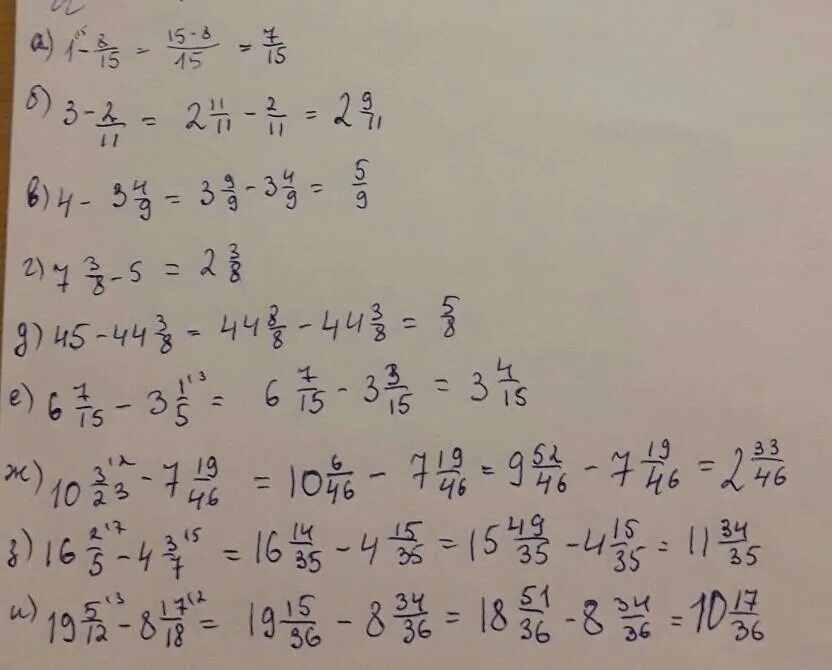 а) 1^15 - 8/15 = (15-8)/15 = 7/15
б) 3 - 2/11 = 2 11/11 - 2/11 = 2 9/11
в) 4 - 3 4/9 = 3 9/9 - 3 4/9 = 5/9
г) 7 3/8 - 5 = 2 3/8
д) 45 - 44 3/8 = 44 8/8 - 44 3/8 = 5/8
е) 6 7/15 - 3 1/5^13 = 6 7/15 - 3 3/15 = 3 4/15
ж) 10 3/23^12 - 7 19/46 = 10 6/46 - 7 19/46 = 9 52/46 - 7 19/46 = 2 33/46
з) 16 2/5^17 - 4 3/7^15 = 16 14/35 - 4 15/35 = 15 49/35 - 4 15/35 = 11 34/35
и) 19 5/12^13 - 8 17/18^12 = 19 15/36 - 8 34/36 = 18 51/36 - 8 34/36 = 10 17/36